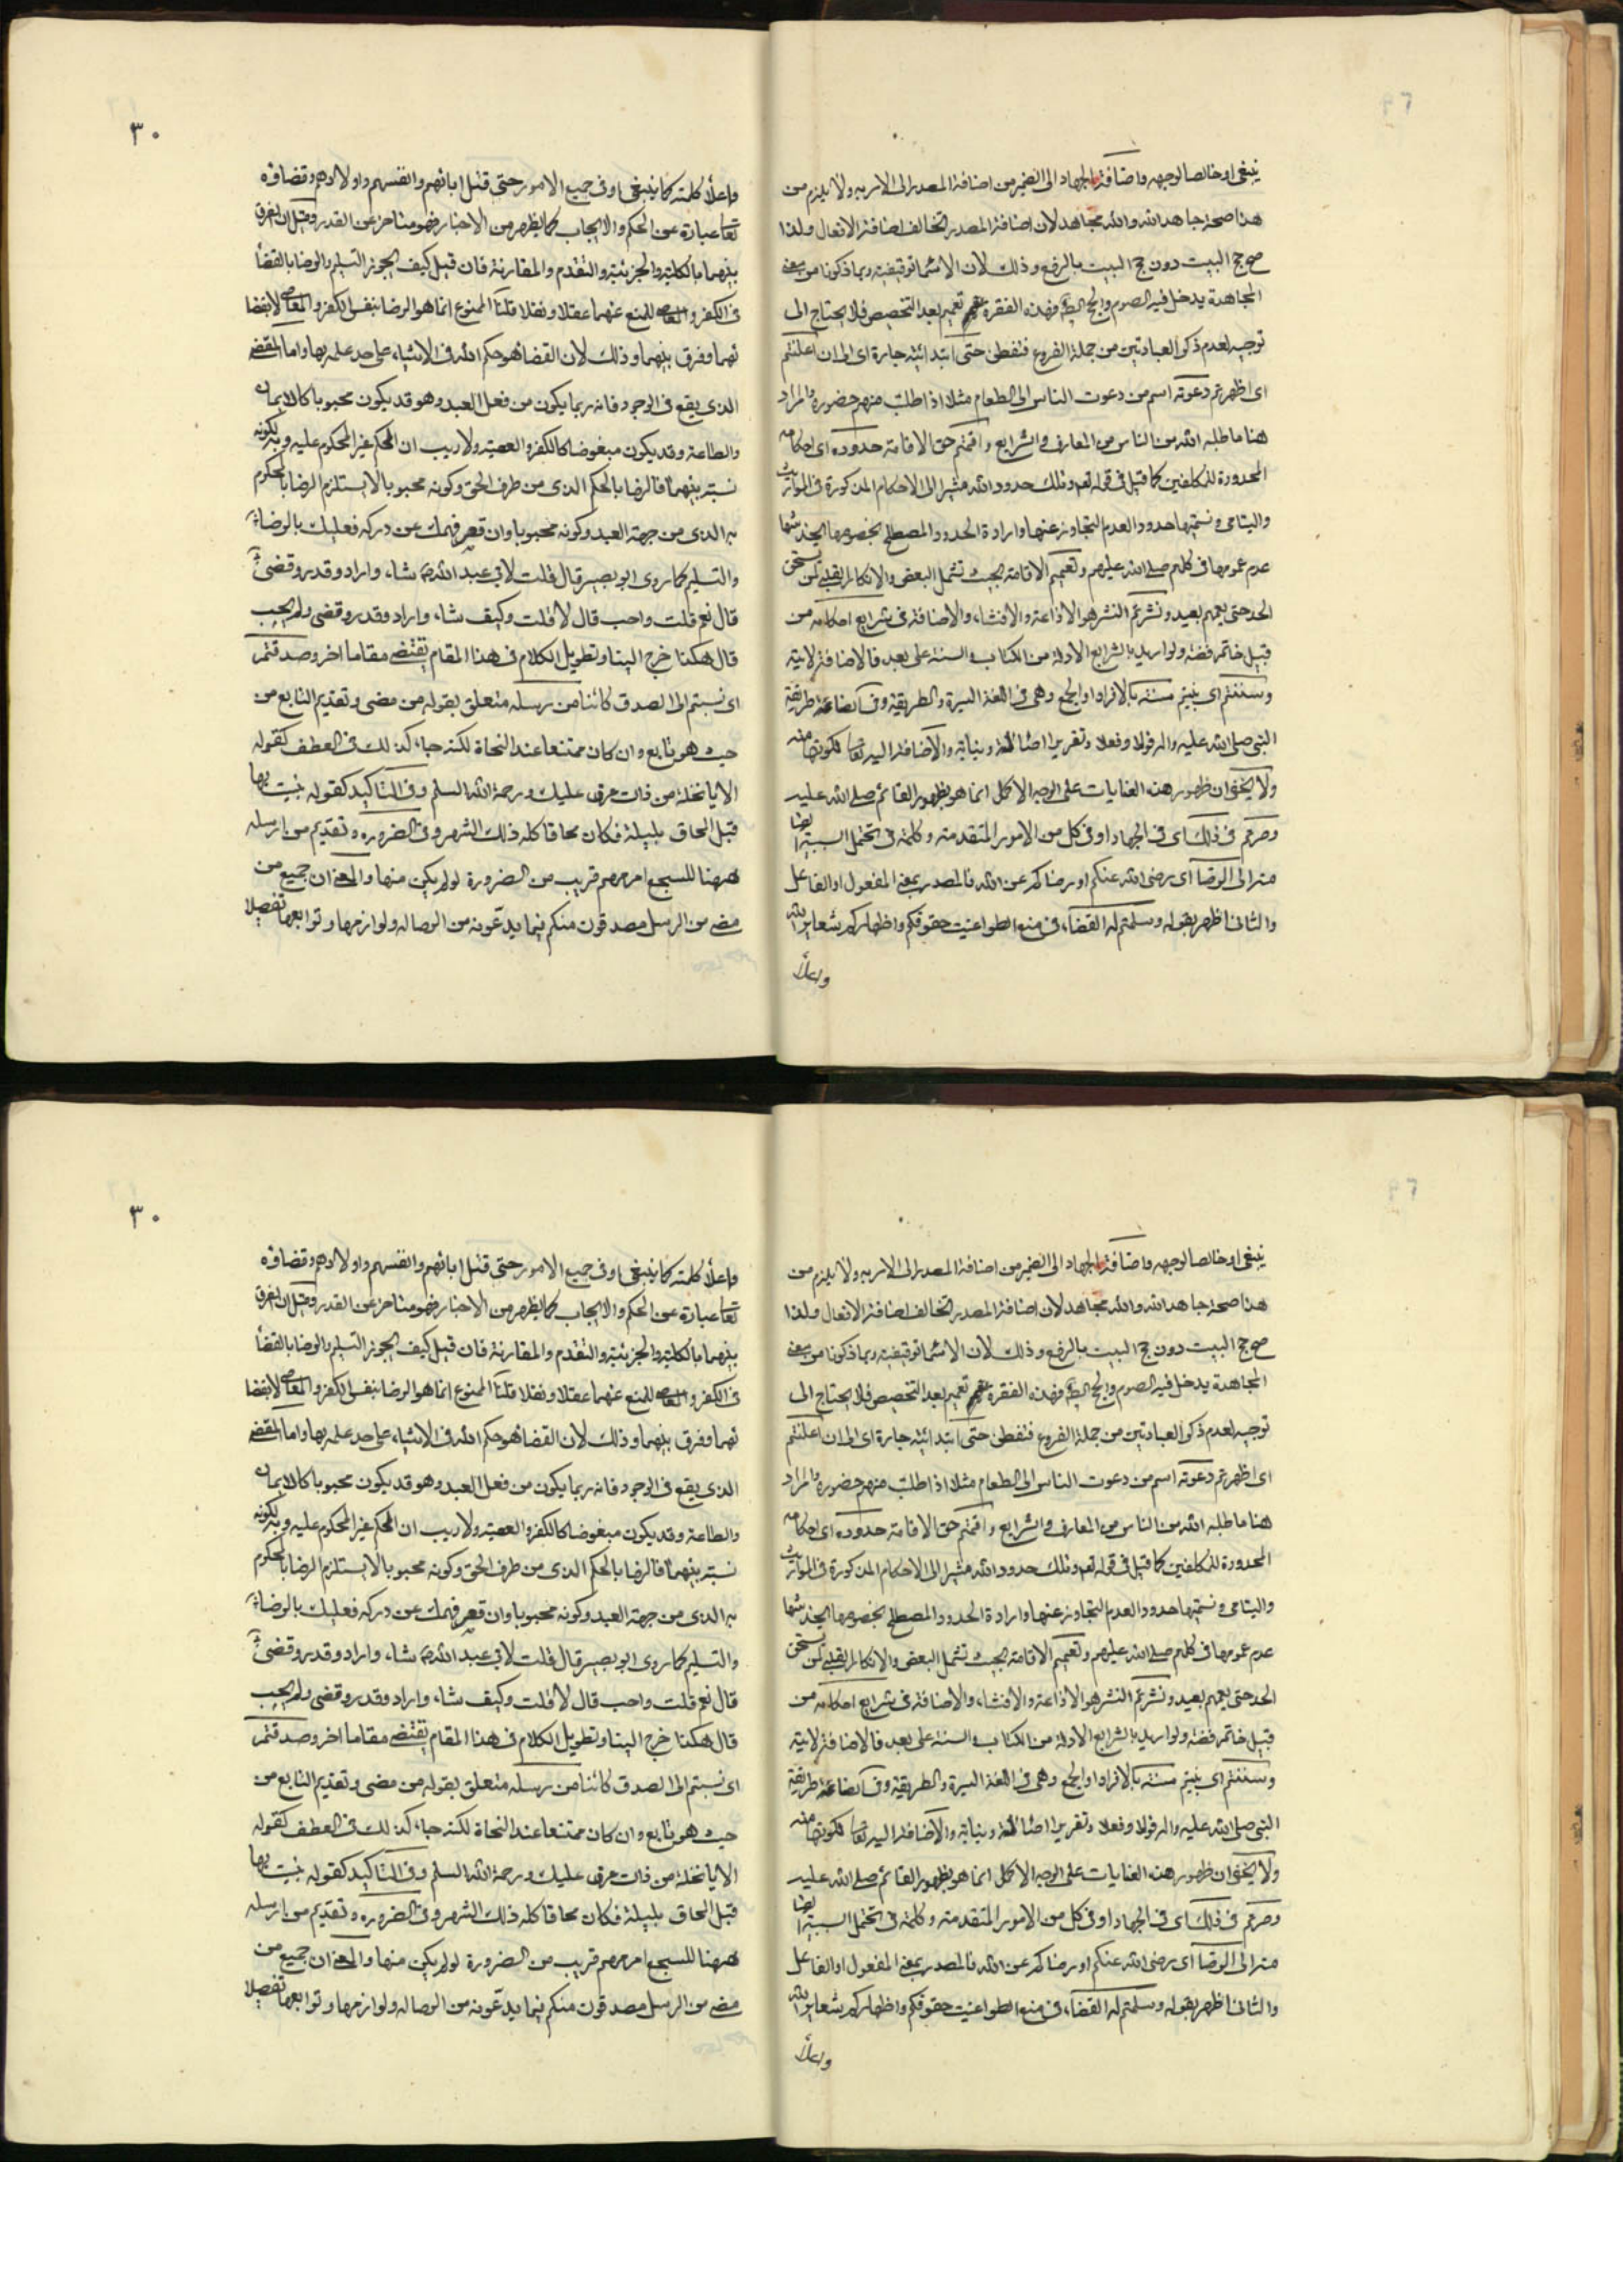 ينبغى او خالصا لوجهه واضافة الجهاد الى الضمير من اضافة المصدر الى الامر به ولا يلزم من
هذا صحة جاهد الله والله مجاهد لان اضافة المصدر تخالف اضافة الافعال ولذا
صح حج البيت دون حج البيت بالرفع وذلك لان الاسماء توقيفية وبما ذكونا من
المجاهدة يدخل فيه الصوم والحج فهذه الفقرة تعميم بعد التخصيص فلا يحتاج الى
توجيه لعدم ذكر العبادتين من جملة الفروع فتفطن حتى ابتدائية جارة اى الى ان اعلنتم
اى اظهرتم دعوته اسم من دعوت الناس الى الطعام مثلا اذا طلبت منهم حضوره والمراد
هنا ما طلبه الله من الناس من المعارف والشرايع واقمتم حق الاقامة حدوده اى احكامه
المحدودة للمكلفين كما قيل فى قوله تعه وتلك حدود الله مشيرا الى الاحكام المذكورة فى المواريث
واليتامى وتسميتها حدودا لعدم التجاوز عنها وارادة الحدود المصطلح بخصوصها
عدم عمومها فى كلهم صلى الله عليهم وتعميم الاقامة بحيث تشمل البعض والا
الحد حتى يعمهم بعيد ونشرتم النشر هو الاذاعة والافشاء والاضافة فى شرايع احكامه من
قبيل خاتم فضة ولو اريد بالشرايع الادلة من الكتاب والسنة على بعد فالاضافة لامية
وسننتم اى بينتم سنته بالافراد او الجمع وهى فى اللغة السيرة والطريقة وفى طريقة
النبى صلى الله عليه واله قولا وفعلا وتقريرا ونيابة والاضافة اليه تعالى لكونها منه
ولا يخفى ان ظهور هذه الغايات على الوجه الاكمل انما هو بظهور القائم صلى الله عليه
وصرتم فى ذلك اى فى الجهاد او فى كل من الامور المتقدمة وكلمة فى تحتمل السببية ايضا
منه الى الرضا اى رضى الله عنكم او رضاكم عن الله فالمصدر بمعنى المفعول او الفاعل
والثانى اظهر بقوله وسلمتم له القضاء فى منع الطواغيت حقوقكم واظهاركم شعاير الله
واعلاء
٣٠
واعلاء كلمته كما ينبغى او فى جميع الامور حتى قتل ابائهم وانفسهم واولادهم وقضاؤه
تعالى عبارة عن الحكم والايجاب كما يظهر من الاخبار فهو متاخر عن القدر وقيل ان الفرق
بينهما بالكلية والجزئية والتقدم والمقارنة فان قيل كيف يجوز التسليم والرضا بالقضاء
فى الكفر والمعاصى للمنع عنهما عقلا ونقلا قلنا الممنوع انما هو الرضا بنفس الكفر والمعاصى لا بقضا
ئهما وفرق بينهما وذلك لان القضا هو حكم الله فى الاشياء على حد علمه بها واما المقضى
الذى يقع فى الوجود فانه ربما يكون من فعل العبد وهو قد يكون محبوبا كالايمان
والطاعة وقد يكون مبغوضا كالكفر والمعصية ولا ريب ان الحكم غير المحكوم عليه وبه لكونه
نسبة بينهما فالرضا بالحكم الذى من طرف الحق وكونه محبوبا لا يستلزم الرضا بالمحكوم
به الذى من جهة العبد وكونه محبوبا وان قصر فهمك عن دركه فعليك بالرضاء
والتسليم كما روى ابو بصير قال قلت لابى عبد الله ع شاء واراد وقدر وقضى
قال نعم قلت واحب قال لا قلت وكيف شاء واراد وقدر وقضى ولم يحب
قال هكذا خرج الينا وتطويل الكلام فى هذا المقام يقتضى مقاما اخر وصدقتم
اى نسبتم الى الصدق كائنا من رسله متعلق بقوله من مضى وتقديم التابع من
حيث هو تابع وان كان ممتنعا عند النحاة لكنه جاء كذلك فى العطف كقوله
الا يا نخلة من ذات عرق عليك ورحمة الله السلم وفى التاكيد كقوله بنيت بها
قبل المحاق بليلة فكان محاقا كله ذلك الشهر وفى الضرورة وتقديم من رسله
ههنا للسجع امر مهم قريب من الضرورة لو لم يكن منها والمعنى ان جميع من
مضى من الرسل مصدقون منكم فيما يدعونه من الرسالة ولوازمها وتوابعها تفصيلا
ينبغى او خالصا لوجهه واضافة الجهاد الى الضمير من اضافة المصدر الى الامر به ولا يلزم من
هذا صحة جاهد الله والله مجاهد لان اضافة المصدر تخالف اضافة الافعال ولذا
صح حج البيت دون حج البيت بالرفع وذلك لان الاسماء توقيفية وبما ذكونا من
المجاهدة يدخل فيه الصوم والحج فهذه الفقرة تعميم بعد التخصيص فلا يحتاج الى
توجيه لعدم ذكر العبادتين من جملة الفروع فتفطن حتى ابتدائية جارة اى الى ان اعلنتم
اى اظهرتم دعوته اسم من دعوت الناس الى الطعام مثلا اذا طلبت منهم حضوره والمراد
هنا ما طلبه الله من الناس من المعارف والشرايع واقمتم حق الاقامة حدوده اى احكامه
المحدودة للمكلفين كما قيل فى قوله تعه وتلك حدود الله مشيرا الى الاحكام المذكورة فى المواريث
واليتامى وتسميتها حدودا لعدم التجاوز عنها وارادة الحدود المصطلح بخصوصها
عدم عمومها فى كلهم صلى الله عليهم وتعميم الاقامة بحيث تشمل البعض والا
الحد حتى يعمهم بعيد ونشرتم النشر هو الاذاعة والافشاء والاضافة فى شرايع احكامه من
قبيل خاتم فضة ولو اريد بالشرايع الادلة من الكتاب والسنة على بعد فالاضافة لامية
وسننتم اى بينتم سنته بالافراد او الجمع وهى فى اللغة السيرة والطريقة وفى طريقة
النبى صلى الله عليه واله قولا وفعلا وتقريرا ونيابة والاضافة اليه تعالى لكونها منه
ولا يخفى ان ظهور هذه الغايات على الوجه الاكمل انما هو بظهور القائم صلى الله عليه
وصرتم فى ذلك اى فى الجهاد او فى كل من الامور المتقدمة وكلمة فى تحتمل السببية ايضا
منه الى الرضا اى رضى الله عنكم او رضاكم عن الله فالمصدر بمعنى المفعول او الفاعل
والثانى اظهر بقوله وسلمتم له القضاء فى منع الطواغيت حقوقكم واظهاركم شعاير الله
واعلاء
٣٠
واعلاء كلمته كما ينبغى او فى جميع الامور حتى قتل ابائهم وانفسهم واولادهم وقضاؤه
تعالى عبارة عن الحكم والايجاب كما يظهر من الاخبار فهو متاخر عن القدر وقيل ان الفرق
بينهما بالكلية والجزئية والتقدم والمقارنة فان قيل كيف يجوز التسليم والرضا بالقضاء
فى الكفر والمعاصى للمنع عنهما عقلا ونقلا قلنا الممنوع انما هو الرضا بنفس الكفر والمعاصى لا بقضا
ئهما وفرق بينهما وذلك لان القضا هو حكم الله فى الاشياء على حد علمه بها واما المقضى
الذى يقع فى الوجود فانه ربما يكون من فعل العبد وهو قد يكون محبوبا كالايمان
والطاعة وقد يكون مبغوضا كالكفر والمعصية ولا ريب ان الحكم غير المحكوم عليه وبه لكونه
نسبة بينهما فالرضا بالحكم الذى من طرف الحق وكونه محبوبا لا يستلزم الرضا بالمحكوم
به الذى من جهة العبد وكونه محبوبا وان قصر فهمك عن دركه فعليك بالرضاء
والتسليم كما روى ابو بصير قال قلت لابى عبد الله ع شاء واراد وقدر وقضى
قال نعم قلت واحب قال لا قلت وكيف شاء واراد وقدر وقضى ولم يحب
قال هكذا خرج الينا وتطويل الكلام فى هذا المقام يقتضى مقاما اخر وصدقتم
اى نسبتم الى الصدق كائنا من رسله متعلق بقوله من مضى وتقديم التابع من
حيث هو تابع وان كان ممتنعا عند النحاة لكنه جاء كذلك فى العطف كقوله
الا يا نخلة من ذات عرق عليك ورحمة الله السلم وفى التاكيد كقوله بنيت بها
قبل المحاق بليلة فكان محاقا كله ذلك الشهر وفى الضرورة وتقديم من رسله
ههنا للسجع امر مهم قريب من الضرورة لو لم يكن منها والمعنى ان جميع من
مضى من الرسل مصدقون منكم فيما يدعونه من الرسالة ولوازمها وتوابعها تفصيلا